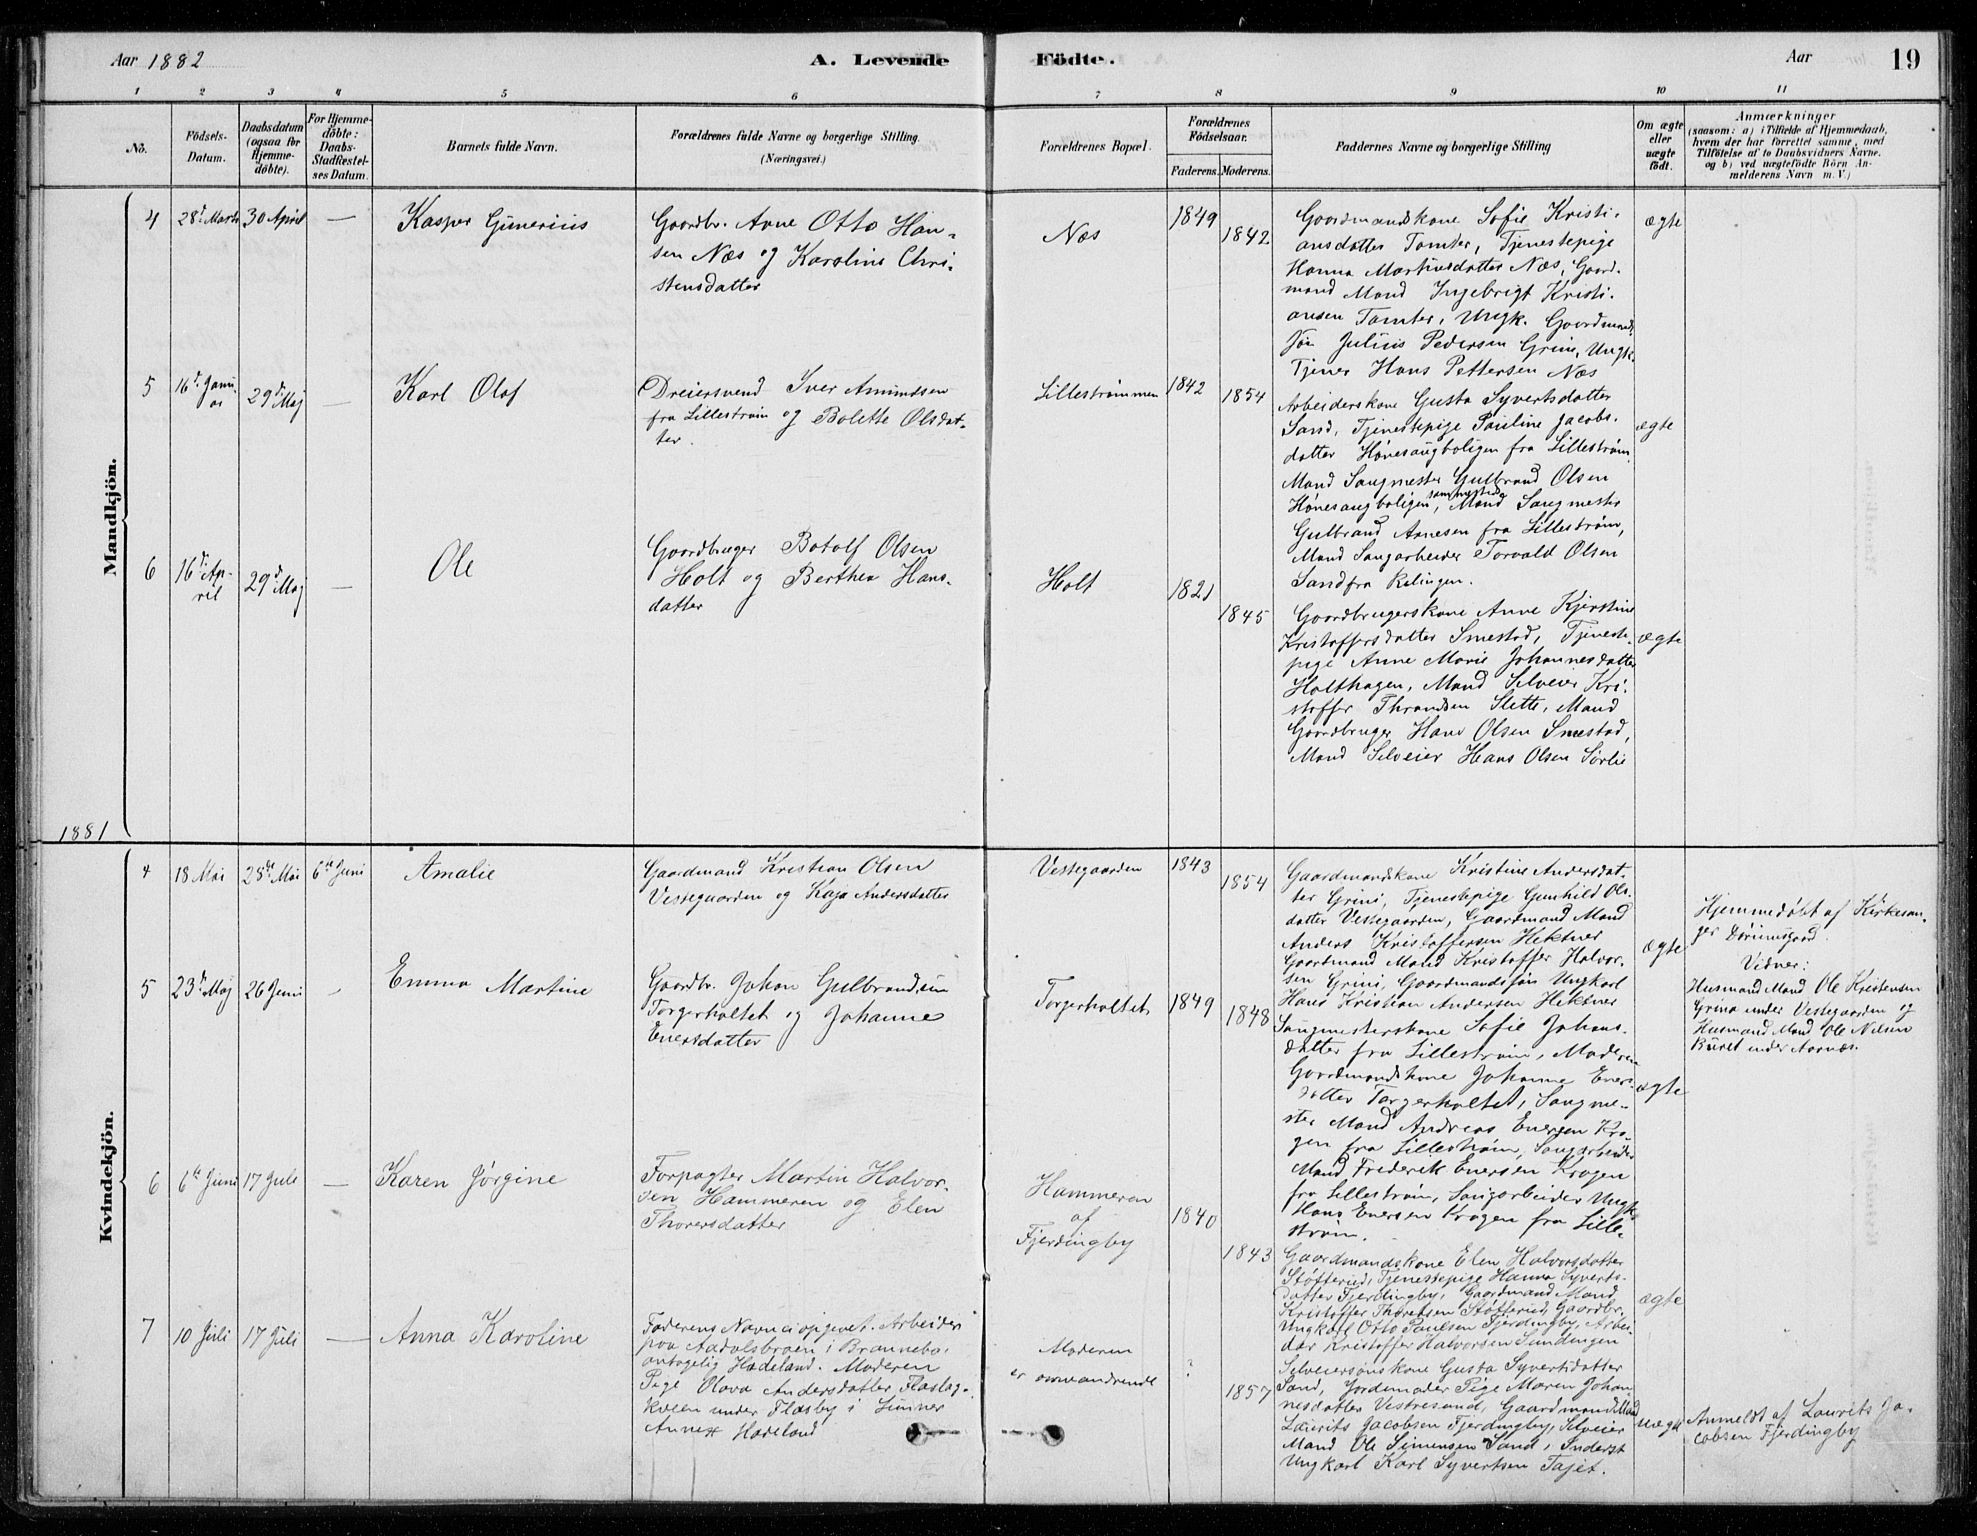 Aar 1882
A. Levende
Födte.
Aar
19
1
2
3
4
5
6
7
8
9
10
11
No.
Födsels-
Datum.
Daabsdatum
(ogsaa for
Hjemme-
döbte).
For Hjemme-
döbte:
Daabs-
Stadfæstel-
ses Datum.
Barnets fulde Navn.
Forældrenes fulde Navne og borgerlige Stilling.
(Næringsvei.)
Forældrenes Bopæl.
Forældrenes
Födselsaar.
Faderens.
Moderens.
Faddernes Navne og borgerlige Stilling
Om ægte
eller
uægte
födt.
Anmærkninger
(saasom: a) i Tilfælde af Hjemmedaab,
hvem der har forrettet samme, med
Tilföielse af to Daabsvidners Navne.
og b) ved uægtefödte Börn An-
melderens Navn m. V.)
Mandkjön.
4
28d Marts
30 April
—
Kasper Gunerius
Gaardbr. Arne Otto Han-
sen Næs og Karoline Chri-
stensdatter
Næs
1849
1842
Gaardmandskone Sofie Kristi-
ansdatter Tomter, Tjenestepige
Hanna Martinsdatter Næs, Gaard-
mand Mand Ingebrigt Kristi-
ansen Tomter, Ungk. Gaardmands
Søn Julius Pedersen Grini, Ungk.
Tjener Hans Pettersen Næs
ægte
5
16d Janu-
ar
29d Maj
—
Karl Olaf
Dreiersvend Iver Amundsen
fra Lillestrøm og Bolette Olsdat-
ter.
Lillestrømmen
1842
1854
Arbeiderskone Gusta Syvertsdatter
Sand, Tjenestepige Pauline Jacobs-
datter Hønesaugboligen fra Lillestrøm
Mand Saugmester Gulbrand Olsen
Hønesaugboligen, sammesteds Mand Saugmester
Gulbrand Arnesen fra Lillestrøm,
Mand Saugarbeider Torvald Olsen
Sand fra Relingen.
ægte
6
16d Ap-
ril
29d Maj
—
Ole
Gaardbruger Botolf Olsen
Holt og Berthea Hans-
datter
Holt
1821
1845
Gaardbrugerskone Anne Kjerstine
Kristoffersdatter Smestad, Tjeneste-
pige Anne Marie Johannesdatter
Holthagen, Mand Selveier Kri-
stoffer Throndsen Slette, Mand
Gaardbruger Hans Olsen Smestad,
Mand Selveier Hans Olsen Sørlie
ægte
1881
Kvindekjön.
4
18 Mai
28de Mai
6te Juni
Amalie
Gaardmand Kristian Olsen
Vestegaarden og Kaja Andersdatter
Vestegaarden
1843
1854
Gaardmandskone Kristine Andersdat-
ter Grini, Tjenestepige Gunhild Ols-
datter Vestegaarden, Gaardmand Mand
Anders Kristoffersen Hektner
Gaardmand Mand Kristoffer Halvor-
sen Grini, Gaardmandssøn Ungkarl
Hans Kristian Andersen Hektner
ægte
Hjemmedøbt af Kirkesan-
ger
Vidner:
Husmand Mand Ole Kristensen
Grina under Vestegaarden og
Husmand Mand Ole Nilsen
Buret under Aarnæs.
5
23d Maj
26 Juni
-
Emma Martine
Gaardbr. Johan Gulbrandsen
Torgerholtet og Johanne
Enersdatter
Torgerholtet
1849
1848
Saugmesterskone Sofie Johans-
datter fra Lillestrøm, Moderen
Gaardmandskone Johanne Eners-
datter Torgerholtet, Saugme-
ster Mand Andreas Enersen Kro-
gen fra Lillestrøm, Saugarbeider
Mand Frederik Enersen Krogen
fra Lillestrøm, Saugarbeider Ungk.
Hans Enersen Krogen fra Lille-
strøm.
ægte
6
6te Juni
17 Juli
—
Karen Jørgine
Forpagter Martin Halvor-
sen Hammeren og Elen
Thorersdatter
Hammeren
af
Fjerdingby
1840
1843
Gaardmandskone Elen Halvorsdatter
Støtterud, Tjenestepige Hanna Syverts-
datter Fjerdingby, Gaardmand Mand
Kristoffer Thoresen Støtterud, Gaardbr.
Ungkarl Otto Paulsen Fjerdingby, Arbei-
der Kristoffer Halvorsen Sundengen
ægte
7
10 Juli
17 Juli
—
Anna Karoline
Faderens Navn ei opgivet. Arbeider
paa Aadalsbroen i
antagelig Hadeland. Moderen
Pige Olava Andersdatter
under Flasby i Lunner
Annex Hadeland
Moderen
er omvandrende
?
1857
Selveiersønskone Gusta Syvertsdatter
Sand, Jordemoder Pige Maren Johan-
nesdatter Vestresand, Gaardmand Mand
Laurits Jacobsen Fjerdingby, Selveier
Mand Ole Simensen Sand, Inderst
Ungkarl Karl Syvertsen Tajet.
uægte
Anmeldt af Laurits Ja-
cobsen Fjerdingby